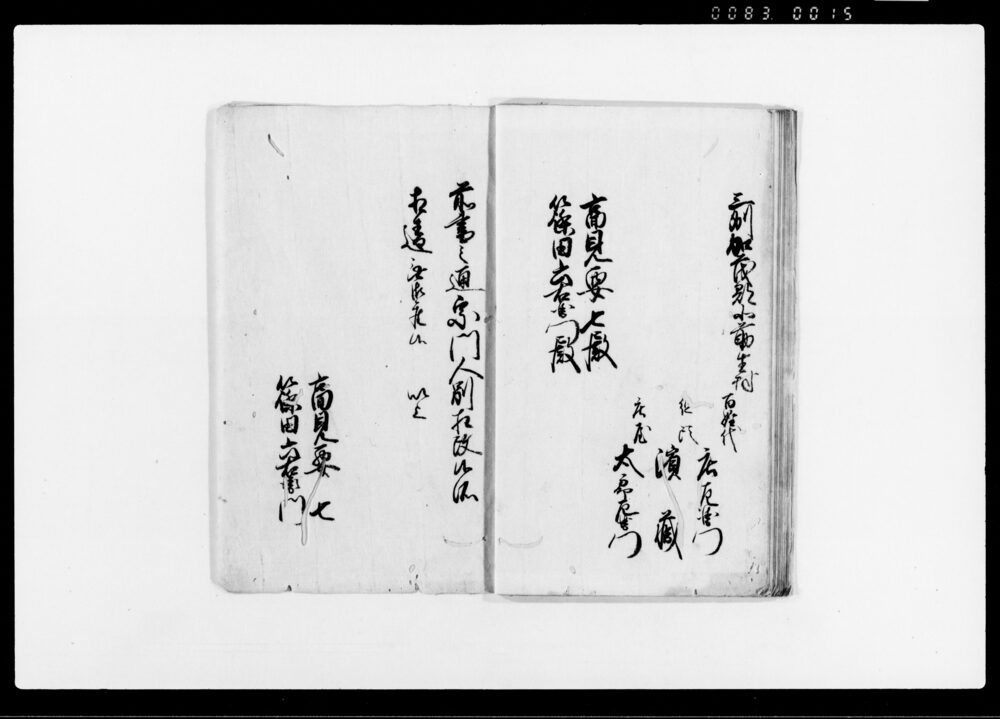 0083.0015
三州加茂郡小前生村
百姓代
庄左衛門
組頭
濱蔵
庄屋
太郎左衛門
高見要七殿
篠田六右衛門殿
前書之通宗門人別相改候処
相違無御座候 以上
高見要七
篠田六右衛門